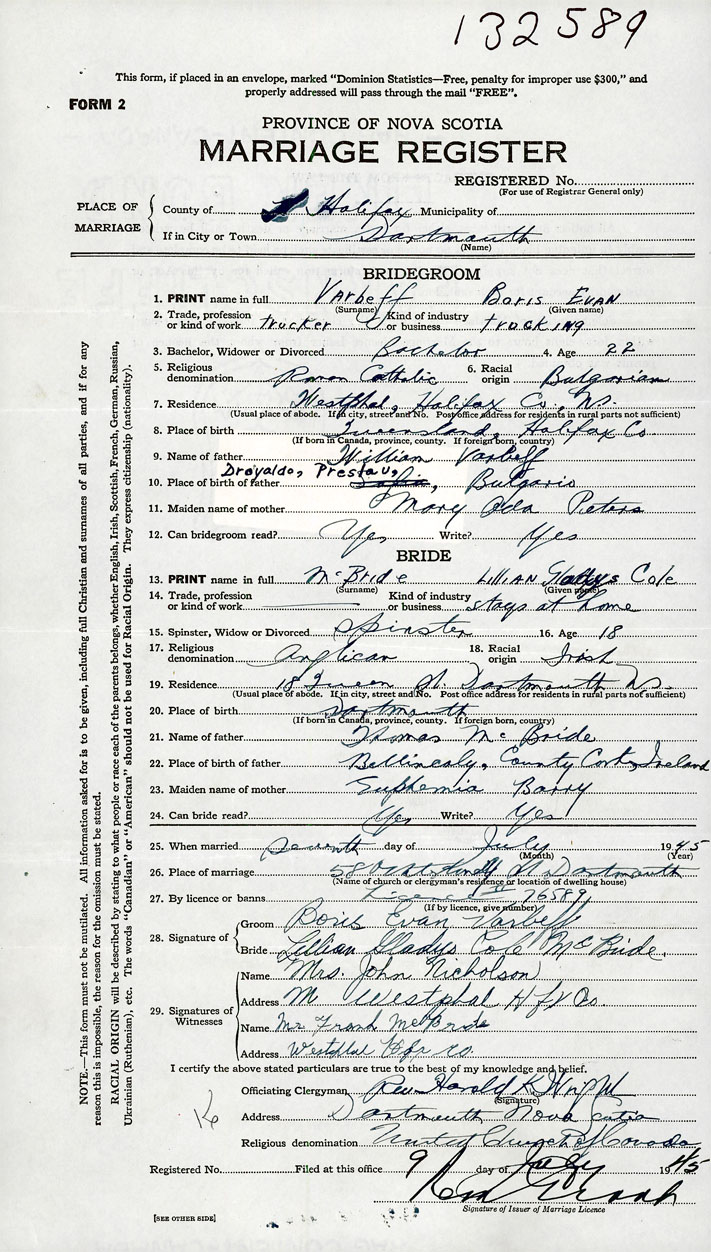 132589
This form, if placed in an envelope, marked "Dominion Statistics—Free, penalty for improper use $300," and
properly addressed will pass through the mail "FREE".
FORM 2
PROVINCE OF NOVA SCOTIA
MARRIAGE REGISTER
REGISTERED No.
(For use of Registrar General only)
PLACE OF MARRIAGE
County of Halifax Municipality of
If in City or Town Dartmouth
(Name)
BRIDEGROOM
1. PRINT name in full Varbeff Boris Evan
(Surname) (Given name)
2. Trade, profession or kind of work trucker Kind of industry or business trucking
3. Bachelor, Widower or Divorced Bachelor 4. Age 22
5. Religious denomination Roman Catholic 6. Racial origin Bulgarian
7. Residence Westphal, Halifax Co., N.S.
(Usual place of abode. If in city, street and No. Post office address for residents in rural parts not sufficient)
8. Place of birth Queensland, Halifax Co
(If born in Canada, province, county. If foreign born, country)
9. Name of father William Varbeff
Droyaldo, Prestau,
10. Place of birth of father Sofia, Bulgaria
11. Maiden name of mother Mary Oda Peters
12. Can bridegroom read? Yes Write? Yes
BRIDE
13. PRINT name in full McBride Lillian Gladys Cole
(Surname) (Given name)
14. Trade, profession or kind of work Kind of industry or business stays at home
15. Spinster, Widow or Divorced Spinster 16. Age 18
17. Religious denomination Anglican 18. Racial origin Irish
19. Residence 18 Queen St. Dartmouth N.S.
(Usual place of abode. If in city, street and No. Post office address for residents in rural parts not sufficient)
20. Place of birth Dartmouth
(If born in Canada, province, county. If foreign born, country)
21. Name of father Thomas McBride
22. Place of birth of father County Cork, Ireland
23. Maiden name of mother Euphemia Barry
24. Can bride read? Yes Write? Yes
25. When married seventh day of July 1945
(Month) (Year)
26. Place of marriage 58 St Dartmouth
(Name of church or clergyman's residence or location of dwelling house)
27. By licence or banns 76589
(If by licence, give number)
28. Signature of Groom Boris Evan Varbeff
Bride Lillian Gladys Cole McBride.
29. Signatures of Witnesses
Name Mrs. John Nicholson
Address Westphal Hfx Co.
Name Mr Frank McBride
Address Westphal Hfx Co.
I certify the above stated particulars are true to the best of my knowledge and belief.
Officiating Clergyman Rev. Harold K.
(Signature)
Address Dartmouth Nova Scotia
Religious denomination United Church of Canada
Registered No. Filed at this office 9 day of July 1945
Signature of Issuer of Marriage Licence
[SEE OTHER SIDE]
NOTE.—This form must not be mutilated. All information asked for is to be given, including full Christian and surnames of all parties, and if for any
reason this is impossible, the reason for the omission must be stated.
RACIAL ORIGIN will be described by stating to what people or race each of the parents belongs, whether English, Irish, Scottish, French, German, Russian,
Ukrainian (Ruthenian), etc. The words "Canadian" or "American" should not be used for Racial Origin. They express citizenship (nationality).